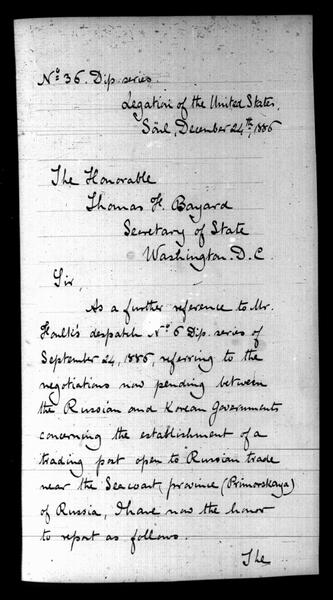 No 36. Dip. series.
Legation of the United States,
Söul, December 24th, 1886
The Honorable
Thomas F. Bayard
Secretary of State
Washington. D.C
Sir,
As a further reference to Mr.
Foulk's despatch No 6 Dip. series of
September 24, 1886, referring to the
negotiations now pending between
the Russian and Korean Governments
concerning the establishment of a
trading port open to Russian trade
near the Seacoast province (Primorskaya)
of Russia, I have now the honor
to report as follows.
The